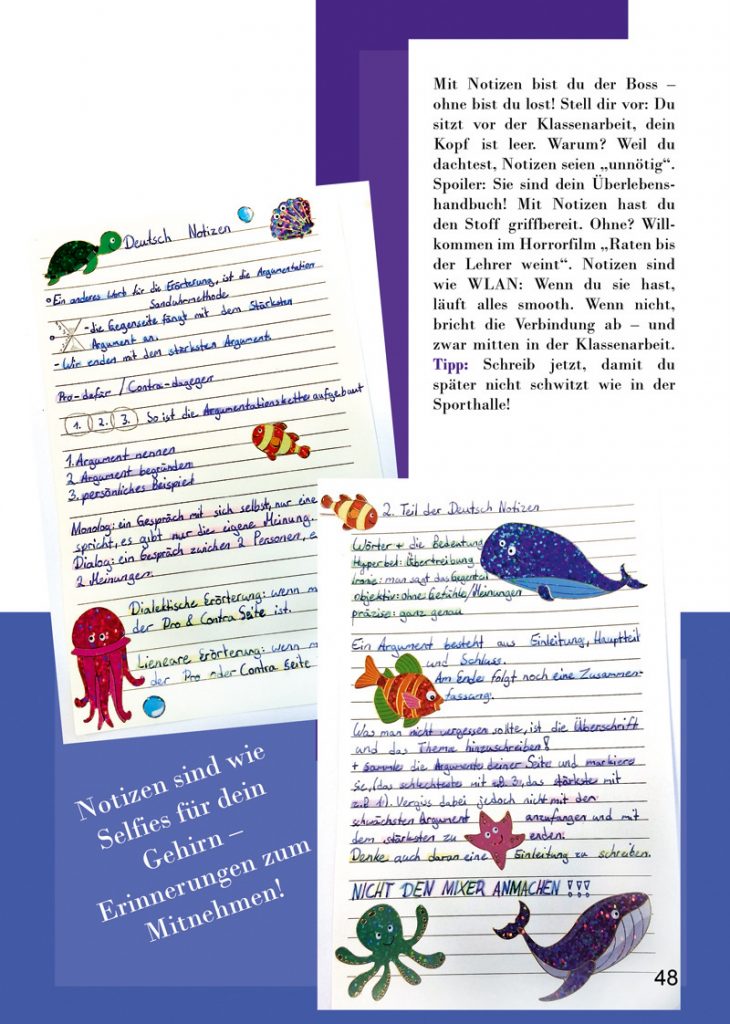 Mit Notizen bist du der Boss –
ohne bist du lost! Stell dir vor: Du
sitzt vor der Klassenarbeit, dein
Kopf ist leer. Warum? Weil du
dachtest, Notizen seien „unnötig“.
Spoiler: Sie sind dein Überlebens-
handbuch! Mit Notizen hast du
den Stoff griffbereit. Ohne? Will-
kommen im Horrorfilm „Raten bis
der Lehrer weint“. Notizen sind
wie WLAN: Wenn du sie hast,
läuft alles smooth. Wenn nicht,
bricht die Verbindung ab – und
zwar mitten in der Klassenarbeit.
Tipp: Schreib jetzt, damit du
später nicht schwitzt wie in der
Sporthalle!
Deutsch Notizen
Ein anderes Wort für die Erörterung, ist die Argumentation
Sanduhrmethode
- die Gegenseite fängt mit dem Stärksten
Argument an.
- Wir enden mit dem stärksten Argument.
Pro - dafür / Contra - dagegen
1. 2. 3. So ist die Argumentationskette aufgebaut
1. Argument nennen
2. Argument begründen
3. persönliches Beispiel
Monolog: ein Gespräch mit sich selbst, nur eine
spricht, es gibt nur die eigene Meinung.
Dialog: ein Gespräch zwichen 2 Personen, e
2 Meinungen.
Dialektische Erörterung: wenn m
der Pro & Contra Seite ist.
Lieneare Erörterung: wenn m
der Pro oder Contra Seite
2. Teil der Deutsch Notizen
Wörter + die Bedeutung
Hyperbel: Übertreibung
Ironie: man sagt das Gegenteil
objektiv: ohne Gefühle/Meinungen
präzise: ganz genau
Ein Argument besteht aus Einleitung, Hauptteil
und Schluss.
Am Ende folgt noch eine Zusammen-
fassung.
Was man nicht vergessen sollte, ist die Überschrift
und das Thema hinzuschreiben!
+ sammle die Argumente deiner Seite und markiere
sie, (das schlechteste mit z.B. 3, das stärkste mit
z.B 1). Vergiss dabei jedoch nicht mit den
schwächsten Argument anzufangen und mit
dem stärksten zu enden.
Denke auch daran eine Einleitung zu schreiben.
NICHT DEN MIXER ANMACHEN !!!
Notizen sind wie
Selfies für dein
Gehirn –
Erinnerungen zum
Mitnehmen!
48